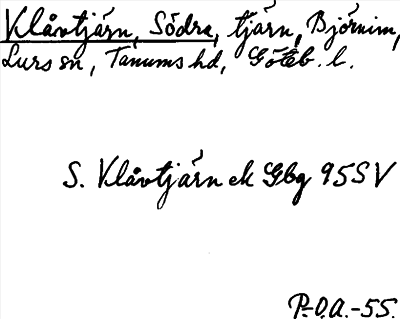 Klåvtjärn, Södra, tjärn, Björnim,
Lurs sn, Tanums hd, Göteb. l.
S. Klåvtjärn ek Gbg 95SV
P.-O.A.-55.